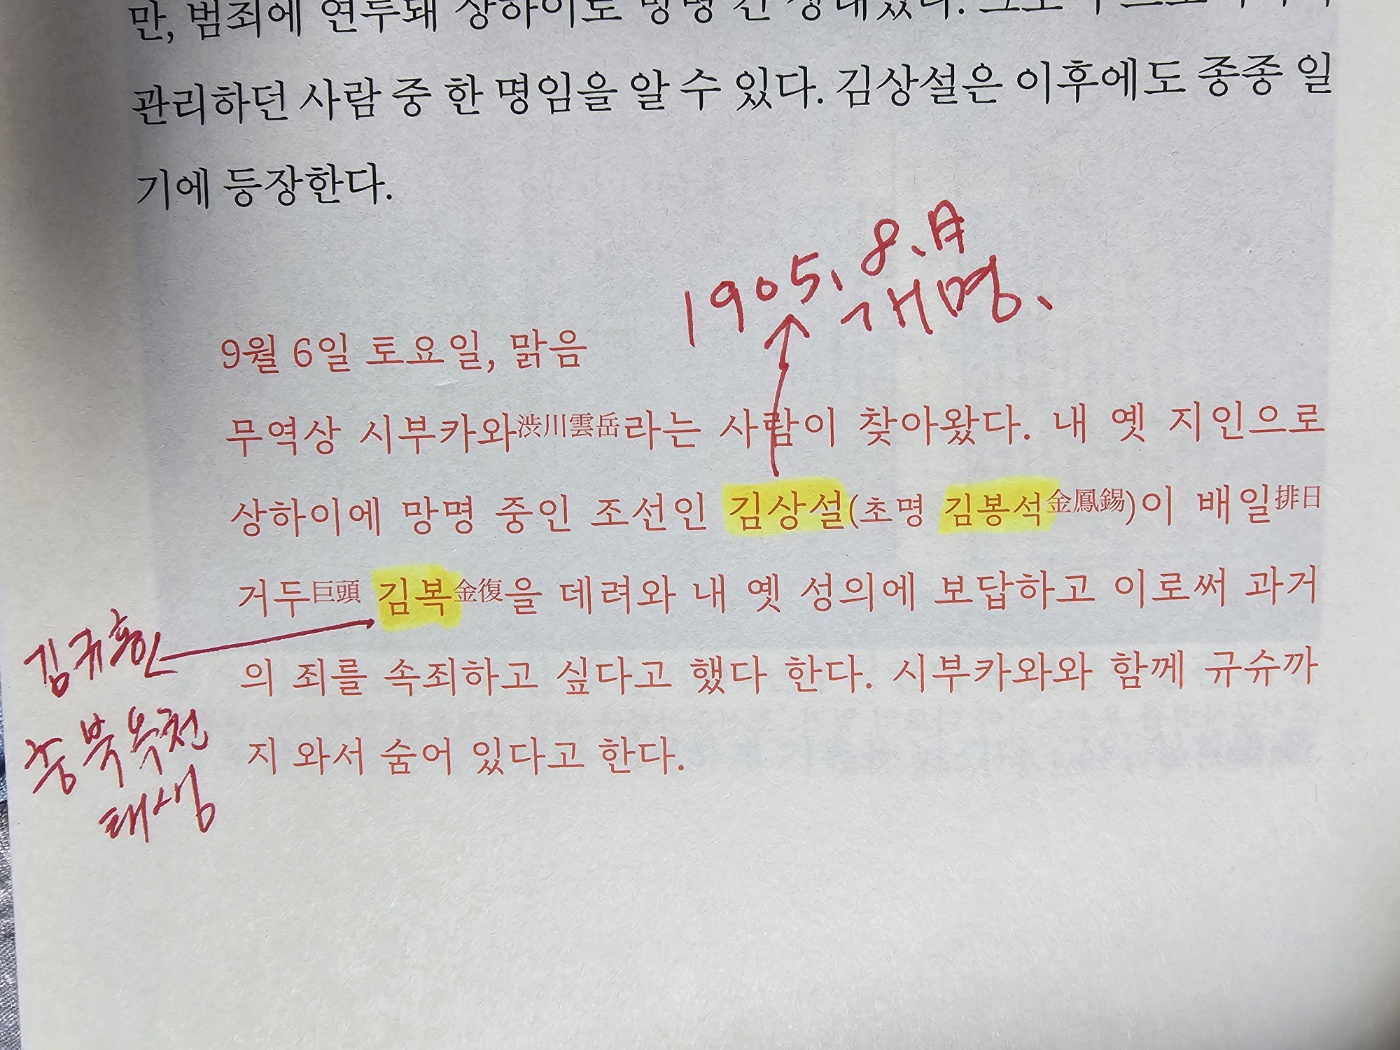 만, 범죄에 연루돼 상하이로 망명 간 상태였다.
관리하던 사람 중 한 명임을 알 수 있다. 김상설은 이후에도 종종 일
기에 등장한다.
1905. 8. 月
개명.
9월 6일 토요일, 맑음
무역상 시부카와渋川雲岳라는 사람이 찾아왔다. 내 옛 지인으로
상하이에 망명 중인 조선인 김상설(초명 김봉석金鳳錫)이 배일排日
거두巨頭 김복金復을 데려와 내 옛 성의에 보답하고 이로써 과거
김규흥
의 죄를 속죄하고 싶다고 했다 한다. 시부카와와 함께 규슈까
지 와서 숨어 있다고 한다.
충북옥천
태생